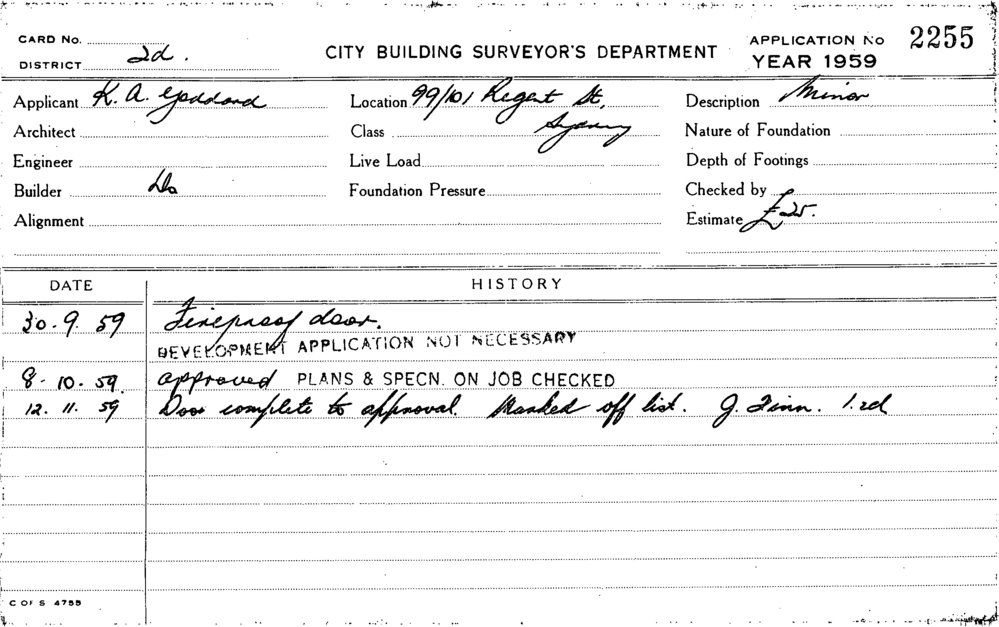 CARD No.
CITY BUILDING SURVEYOR'S DEPARTMENT
APPLICATION No 2255
DISTRICT 2d.
YEAR 1959
Applicant K. A. Goddard
Location 99/101 Regent St,
Description Minor
Architect
Class Sydney
Nature of Foundation
Engineer
Live Load
Depth of Footings
Builder Do
Foundation Pressure
Checked by
Alignment
Estimate £25.
DATE
HISTORY
30.9.59 Fireproof door.
DEVELOPMENT APPLICATION NOT NECESSARY
8.10.59. approved PLANS & SPECN. ON JOB CHECKED
12.11.59 Door complete to approval. Marked off list. J. Finn.
C OF S 4755